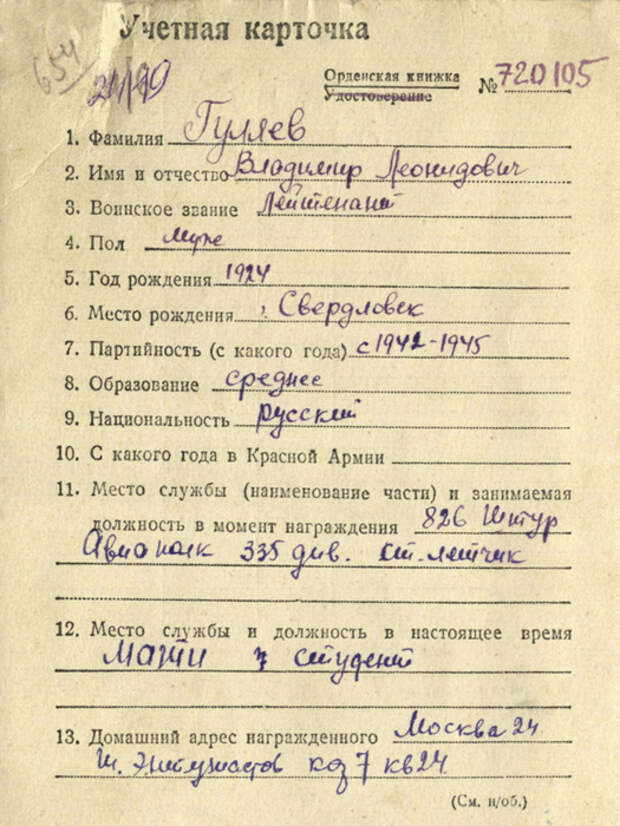 Учетная карточка
654
21/90
Орденская книжка
Удостоверение
№ 720105
1. Фамилия Гуляев
2. Имя и отчество Владимир Леонидович
3. Воинское звание Лейтенант
4. Пол муж
5. Год рождения 1924
6. Место рождения Свердловск
7. Партийность (с какого года) с 1942-1945
8. Образование среднее
9. Национальность русский
10. С какого года в Красной Армии
11. Место службы (наименование части) и занимаемая
должность в момент награждения 826 Штур
Авиаполк 335 див. ст. летчик
12. Место службы и должность в настоящее время
студент
13. Домашний адрес награжденного Москва 24
Ш. Энтузиастов 7 кв 24
(См. н/об.)